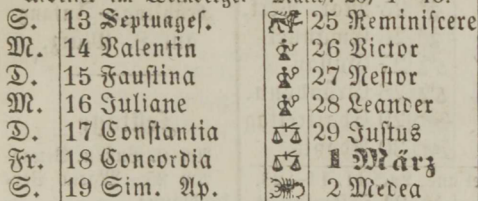 S. 13 Septuages. 25 Reminiscere
M. 14 Valentin 26 Victor
D. 15 Faustina 27 Nestor
M. 16 Juliane 28 Leander
D. 17 Constantia 29 Justus
Fr. 18 Concordia 1 März
S. 19 Sim. Ap. 2 Medea